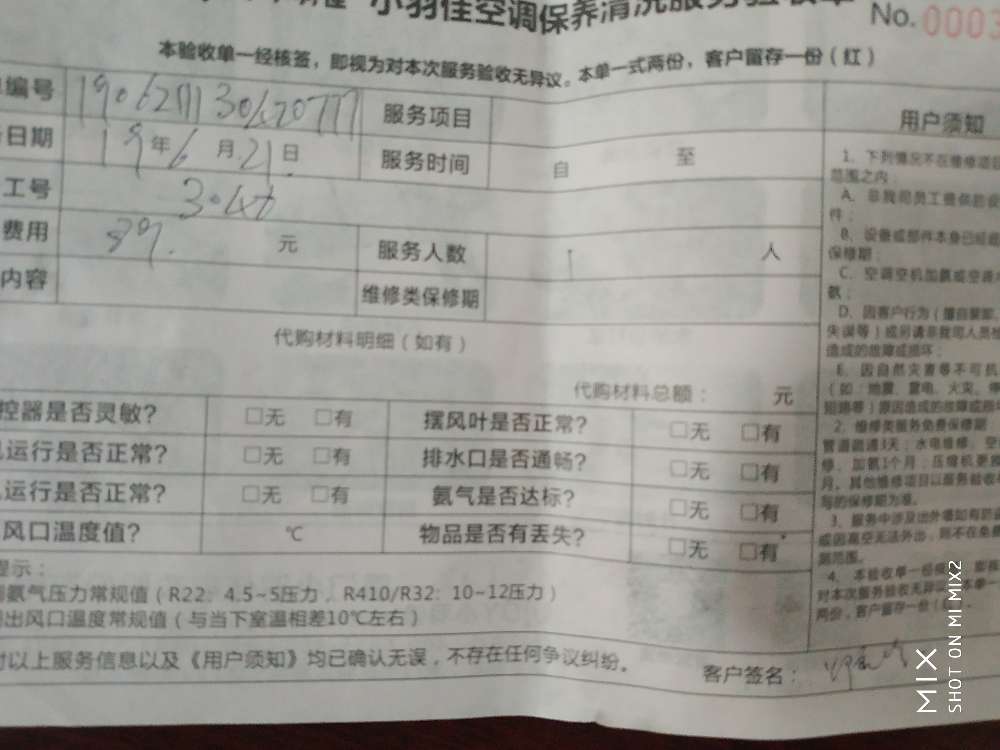 小羽佳空调保养清洗服务验收单
No. 0003
本验收单一经核签，即视为对本次服务验收无异议。本单一式两份，客户留存一份（红）
编号 服务项目
日期 19年6月21日 服务时间 自 至
工号
费用 89. 元 服务人数 1 人
内容 维修类保修期
代购材料明细（如有）
代购材料总额： 元
控器是否灵敏? □无 □有 摆风叶是否正常? □无 □有
运行是否正常? □无 □有 排水口是否通畅? □无 □有
运行是否正常? □无 □有 氨气是否达标? □无 □有
风口温度值? ℃ 物品是否有丢失? □无 □有
提示：
氨气压力常规值（R22：4.5~5压力，R410/R32：10~12压力）
出风口温度常规值（与当下室温相差10℃左右）
对以上服务信息以及《用户须知》均已确认无误，不存在任何争议纠纷。
客户签名：
用户须知
1、下列情况不在维修项目
范围之内：
A、非我司员工擅自
件；
B、设备或部件本身已经
保修期；
C、空调空机加氨或空调
氨；
D、因客户行为（擅自
失误等）或另请非我司人员
造成的故障或损坏；
E、因自然灾害等不可抗
（如：地震、雷电、火灾、
短路等）原因造成的故障或
2、维修类服务免费保修期：
管道疏通3天；水电维修、空
修、加氨1个月；压缩机更
月。其他维修项目以服务验收
写的保修期为准。
3、服务中涉及出外墙如有
或因高空无法外出，则不在
测范围。
4、本验收单一经
对本次服务验收无异议。本单一
两份，客户留存一份（
MIX
SHOT ON MI MIX2